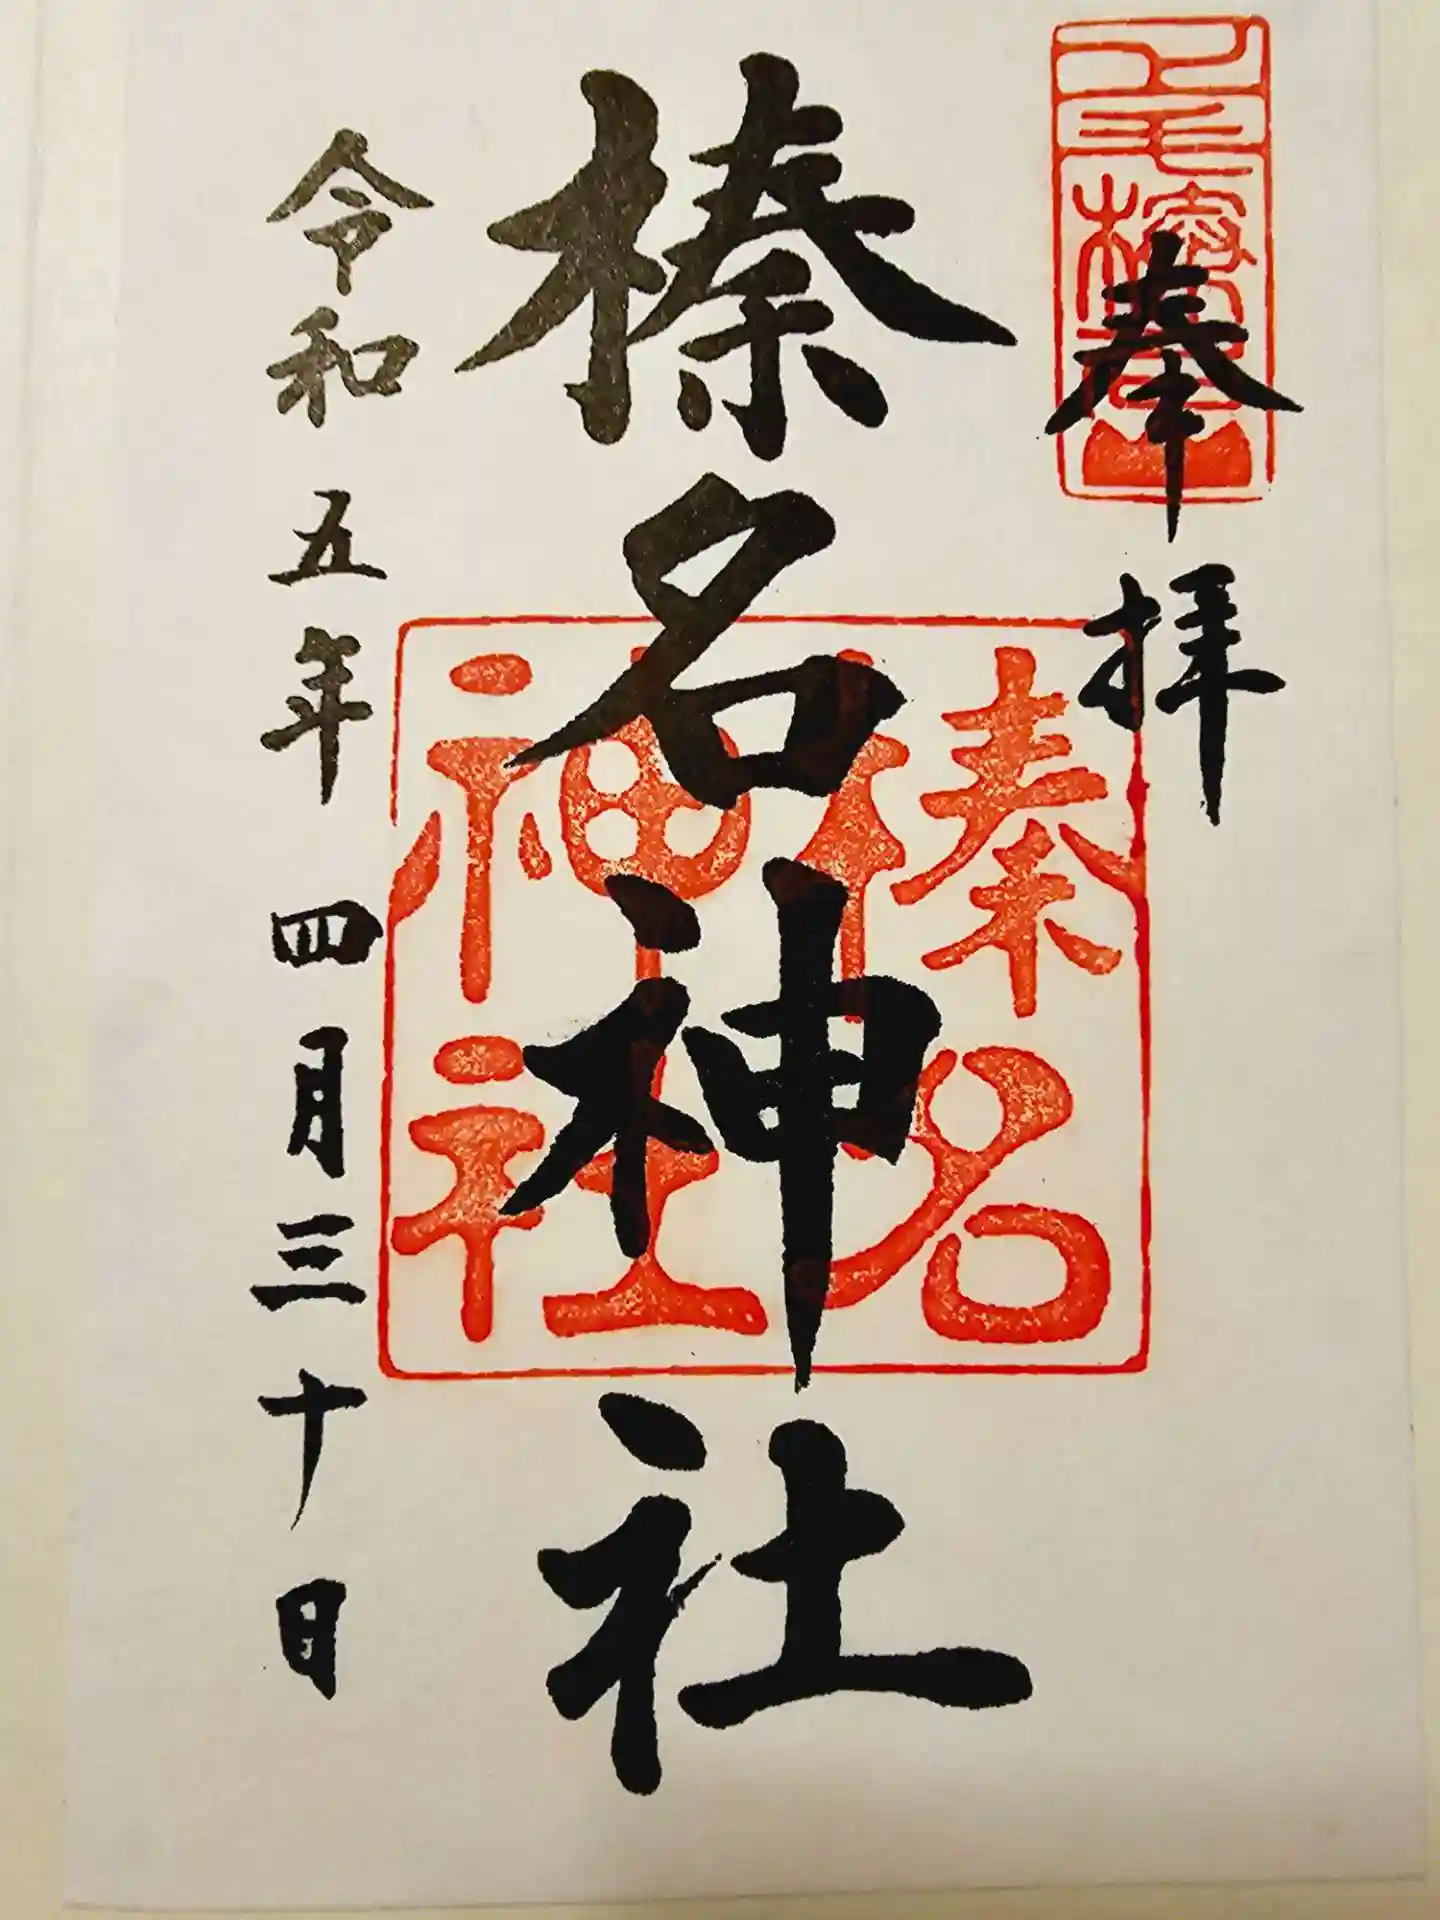 奉拝
榛名神社
榛名
神社
令和五年四月三十日